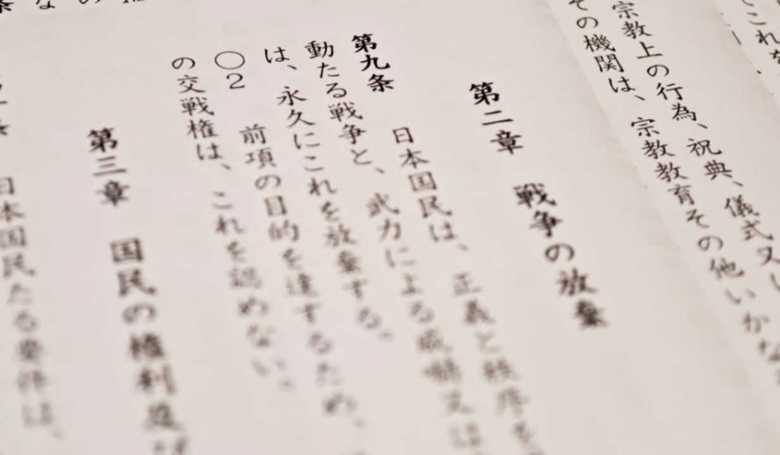 てこれを
宗教上の行為、祝典、儀式又
その機関は、宗教教育その他いかな
第二章　戦争の放棄
第九条　日本国民は、正義と秩序を
動たる戦争と、武力による威嚇又は
は、永久にこれを放棄する。
○２　前項の目的を達するため、
の交戦権は、これを認めない。
第三章　国民の権利及び
条　日本国民たる要件は、